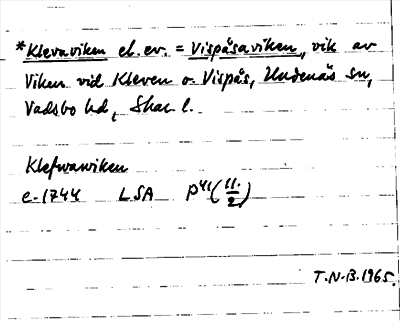 *Klevaviken el. ev. = Vispåsaviken, vik av
Viken vid Kleven o. Vispås, Undenäs sn,
Vadsbo hd, Skar. l.
Klefwawiken
e. 1744 LSA P41 (11/2)
T.N-B. 1965.